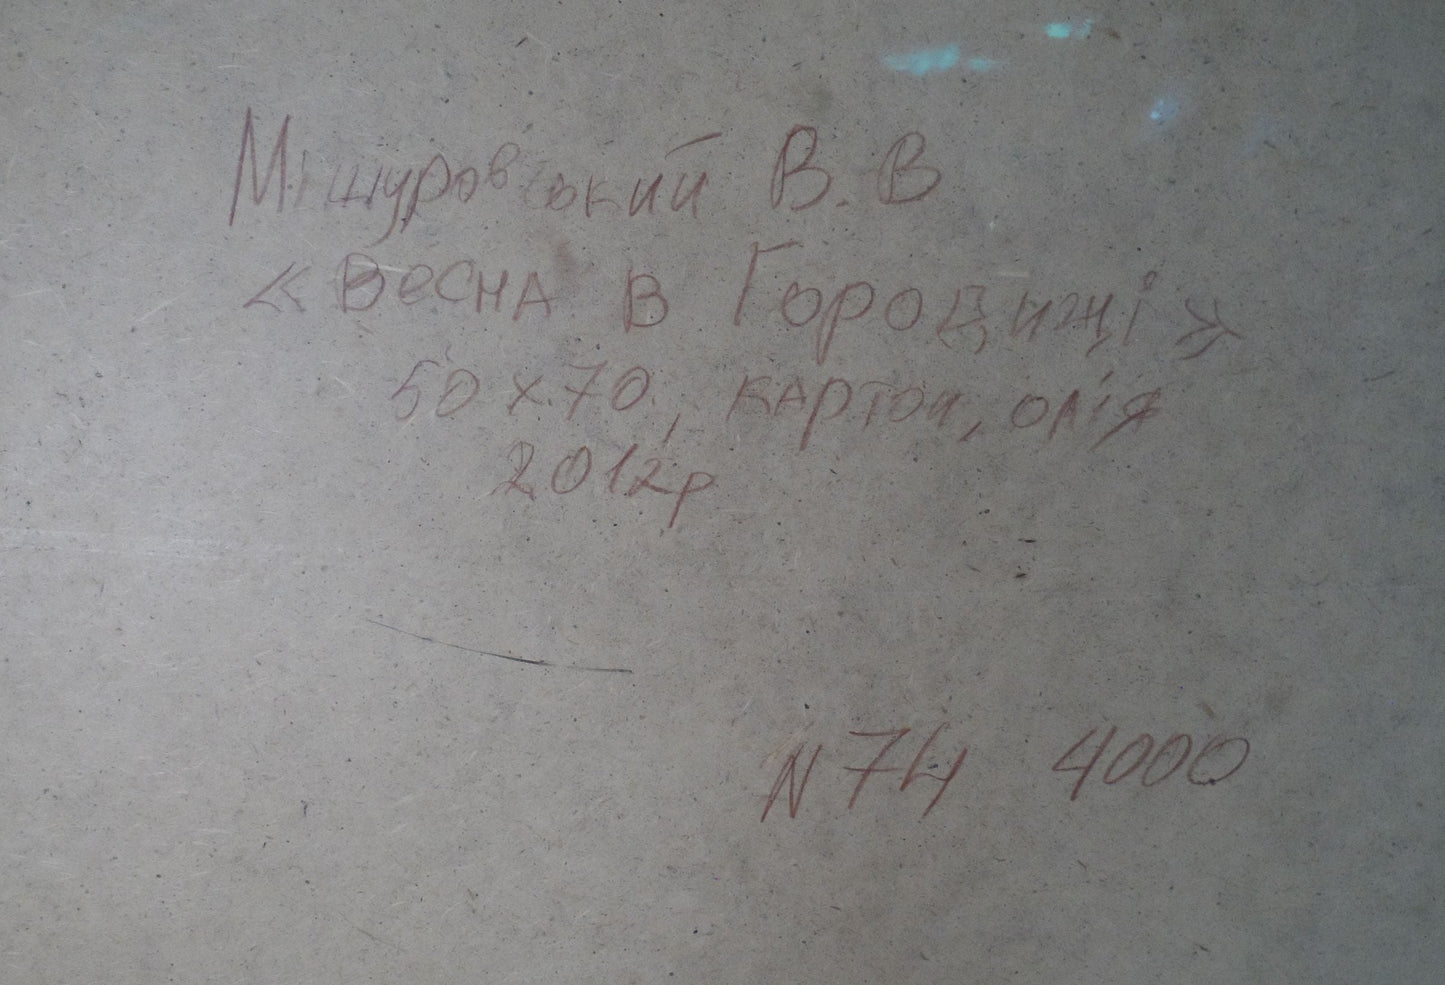 Мішуровський В. В
«Весна в Городищі»
50 х 70, картон, олія
2012р
N 74 4000